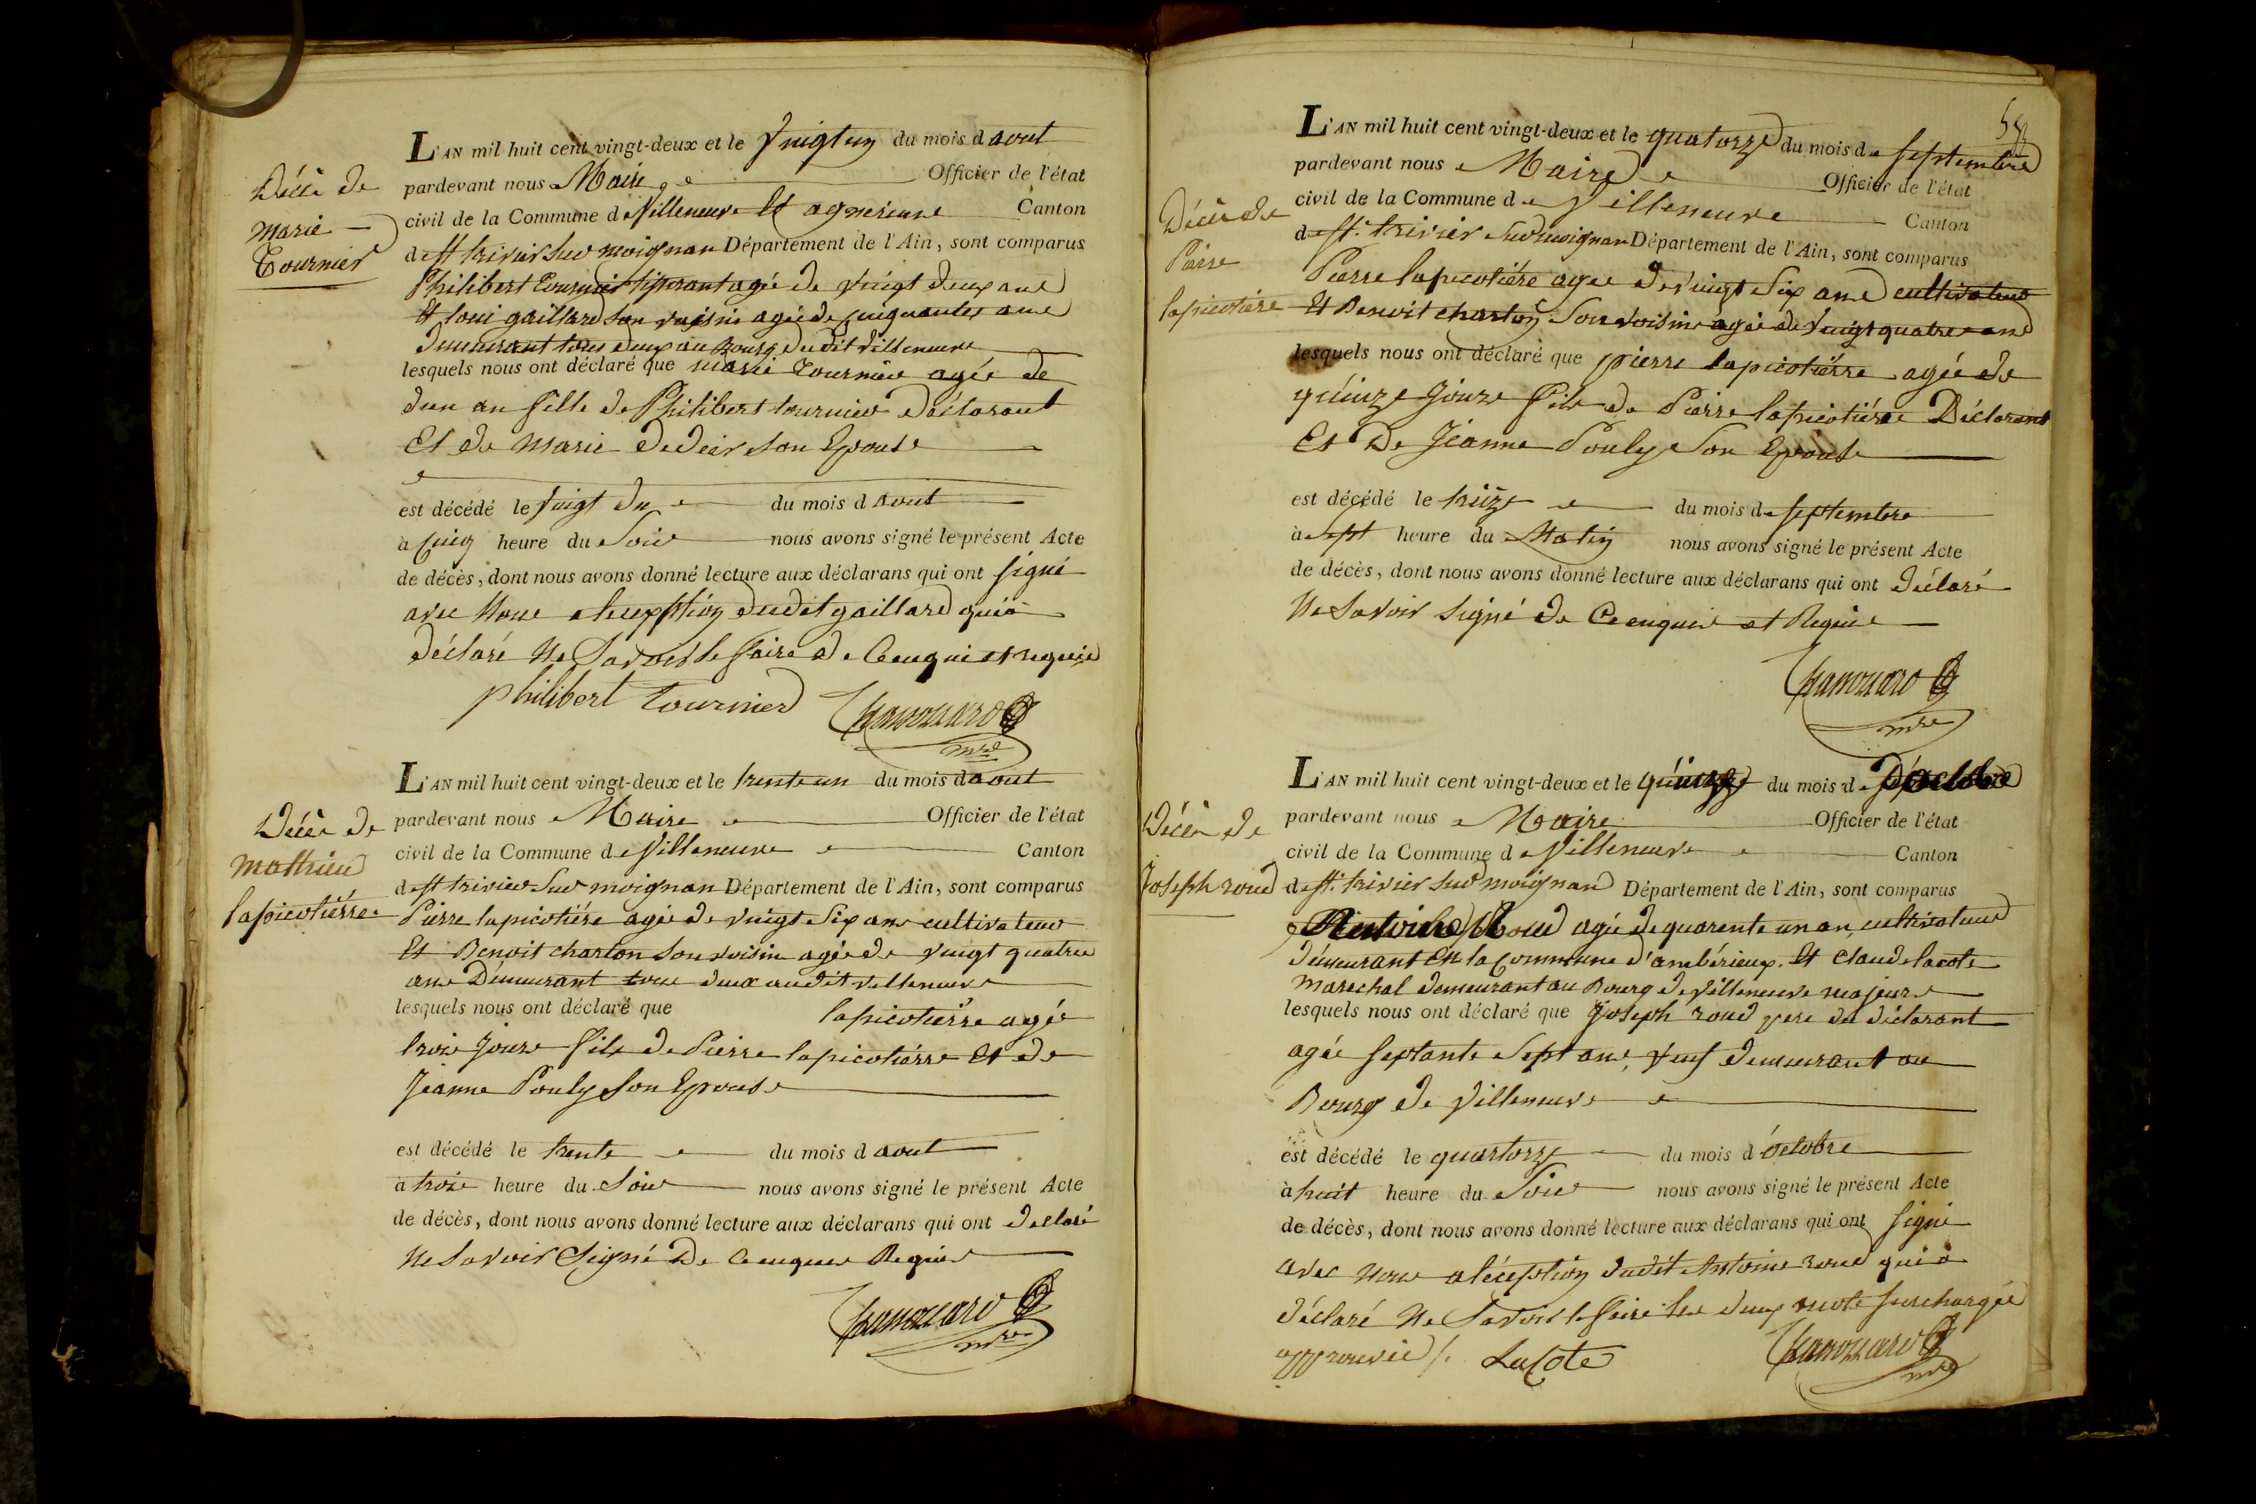 Décè de
Marie
Tournier
L'AN mil huit cent vingt-deux et le vingt un du mois d aout
pardevant nous Maire Officier de l'état
civil de la Commune de Villeneuve Et agnereins Canton
de St trivier Sur moignan Département de l'Ain, sont comparus
Philibert Tournier agé de vingt deux ans
Et loui gaillard Son voisin agé de cinquante ans
Demeurant tous deux au Bourg dudit Villeneuve
lesquels nous ont déclaré que marie Tournier agée de
d'un an fille de Philibert tournier Déclarant
Et de Marie Dedeir Son Epouse
est décédé le vingt du mois d aout
à cinq heure du Soir nous avons signé le présent Acte
de décès, dont nous avons donné lecture aux déclarans qui ont signé
avec Nous dudit gaillard qui a
Déclaré Ne Savoir le faire De Ce enquis et requis
philibert tournier Chanouard
mre
Décè de
Mathieu
lapicotiérre
L'AN mil huit cent vingt-deux et le trente un du mois d aout
pardevant nous Maire Officier de l'état
civil de la Commune de Villeneuve Canton
de St trivier Sur moignan Département de l'Ain, sont comparus
Pierre lapicotiére agé de vingt Six ans cultivateur
Et Benoit charton Son voisin agé de vingt quatre
ans Demeurant tous deux audit villeneuve
lesquels nous ont déclaré que lapicotiérre agé
trois jours fils de Pierre lapicotiérre Et de
Jeanne Pouly Son Epouse
est décédé le trente du mois d aout
à trois heure du Soir nous avons signé le présent Acte
de décès, dont nous avons donné lecture aux déclarans qui ont declaré
Ne Savoir Signé De Ce enquis Requis
Chanouard
mre
Décè de
Pierre
lapicotiére
L'AN mil huit cent vingt-deux et le quatorze du mois de septembre
pardevant nous Maire Officier de l'état
civil de la Commune de Villeneuve Canton
de St. trivier Sur moignan Département de l'Ain, sont comparus
Pierre lapicotiére agé de vingt Six ans cultivateur
Et Benoit charton Son voisin agé de vingt quatre ans
lesquels nous ont déclaré que pierre lapicotiérre agé de
quinze jours fils de Pierre lapicotiére Déclarant
Et De Jéanne Pouly Son Epouse
est décédé le treize du mois de septembre
à sept heure du Matin nous avons signé le présent Acte
de décès, dont nous avons donné lecture aux déclarans qui ont déclaré
Ne Savoir Signé De Ce enquis et Requis
Chanouard
mre
Décè de
Joseph roud
L'AN mil huit cent vingt-deux et le quinze du mois d octobre
pardevant nous Maire Officier de l'état
civil de la Commune de Villeneuve Canton
de St. trivier Sur moignan Département de l'Ain, sont comparus
Antoine Roud agé de quarente un an, cultivateur
Démeurant En la Commune d'ambérieux. Et Claude lacote
Marechal demeurant au Bourg de Villeneuve majeurs
lesquels nous ont déclaré que Joseph roud pere du déclarant
agée septante Sept ans, veuf demeurant au
Bourg de Villeneuve
est décédé le quatorze du mois d'octobre
à huit heure du Soir nous avons signé le présent Acte
de décès, dont nous avons donné lecture aux déclarans qui ont signé
avec Nous a léception dudit Antoine roud qui a
déclaré Ne Savoir le faire les deux mots surchargée
approuvée /. LaCote Chanouard
mre